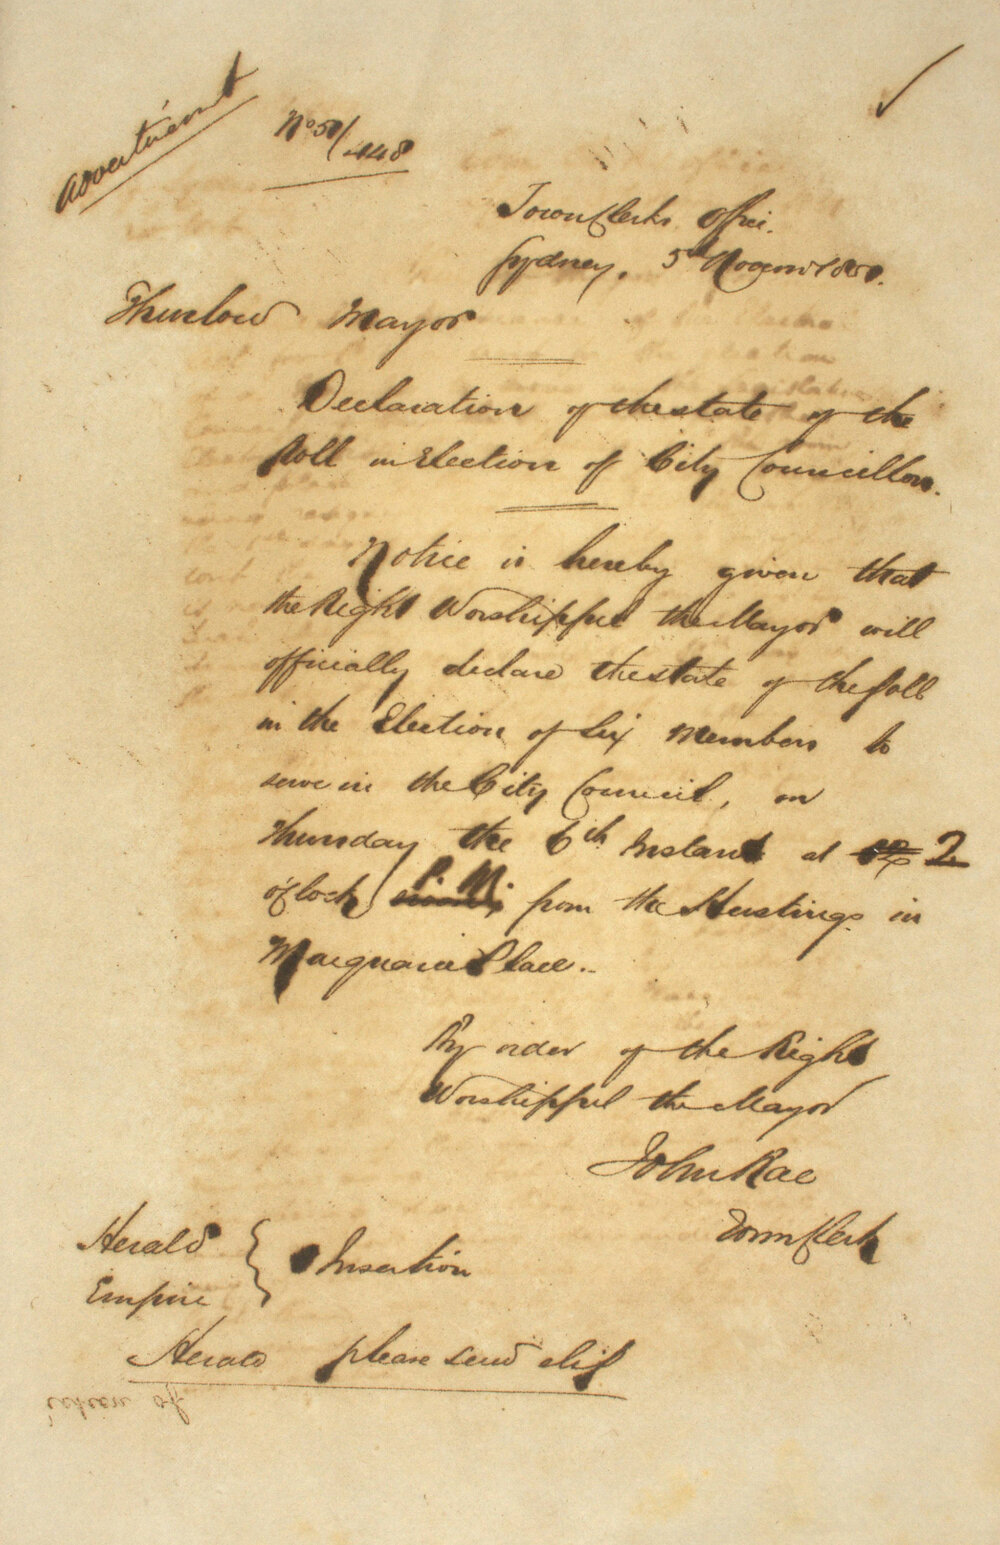 Advertisement
No 51/448
Town Clerks Office.
Sydney, 5th Novemr 1851.
Thurlow Mayor
Declaration of the state of the
Poll in Election of City Councillors.
Notice is hereby given that
the Right Worshipful the Mayor will
officially declare the state of the Poll
in the Election of Six Members to
serve in the City Council, on
Thursday the 6th Instant at 2
o'Clock P.M. from the Hustings in
Macquarie Place.
By order of the Right
Worshipful the Mayor
John Rae
Town Clerk
Herald
Empire
Insertion
Herald please send slip